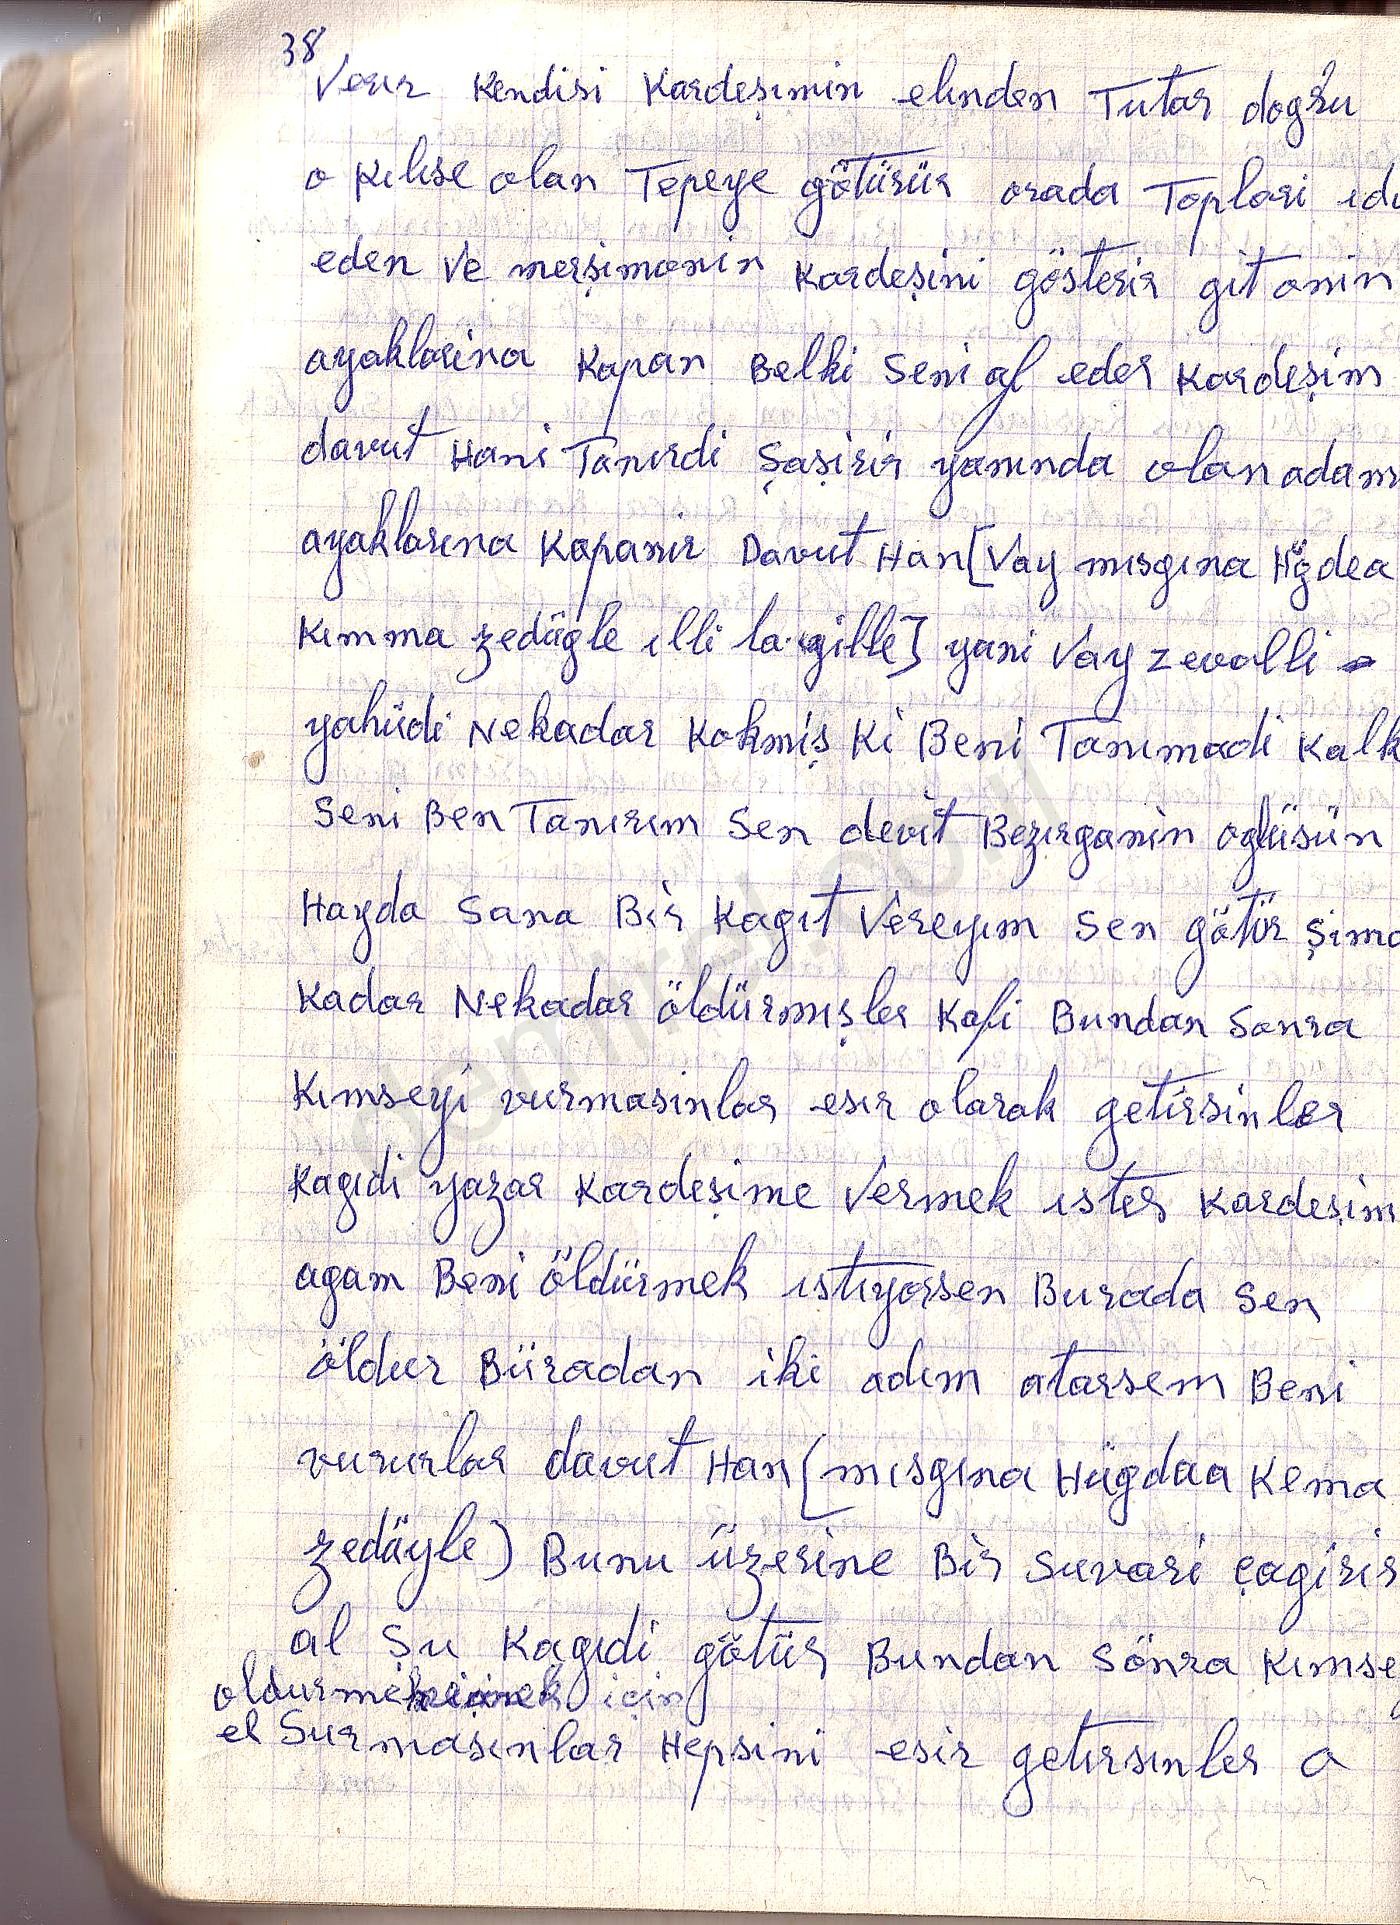 38
Verır Kendisi Kardeşımin elınden Tutar doğru
o Kılıse olan Tepeye götürür orada Toplari ıdı
eden Ve merşimonin Kardeşini gösterir gıt onin
ayaklarina Kapan Belki Seni af eder Kardeşim
davut Hani Tanırdi Şaşirir yanında olan adam
ayaklarına Kapanir Davut Han [Vay mısgına Hüdea
Kımma zedägle ılli la gille] yani Vay zevalli
yahüdi Nekadar Kokmiş Ki Beni Tanımadi Kalk
Seni Ben Tanırım Sen devit Bezırganin oglüsün
Hayda Sana Bir Kagıt Vereyım Sen götür şimd
Kadar Nekadar öldürmışler Kafi Bundan Sonra
Kımseyi vurmasinlar esır olarak getirsinler
Kagıdi yazar Kardeşime Vermek ıster Kardeşim
agam Beni öldürmek ıstıyorsen Burada Sen
öldur Büradan iki adım atarsem Beni
vururlar davut Han (mısgına Hügdaa Kema
zedäyle) Bunu üzerine Bir Suvari çagirir
al Şu Kagıdi götür Bundan Sönra Kımse
oldurmek için
el Surmasınlar Hepsini esir getırsınler o